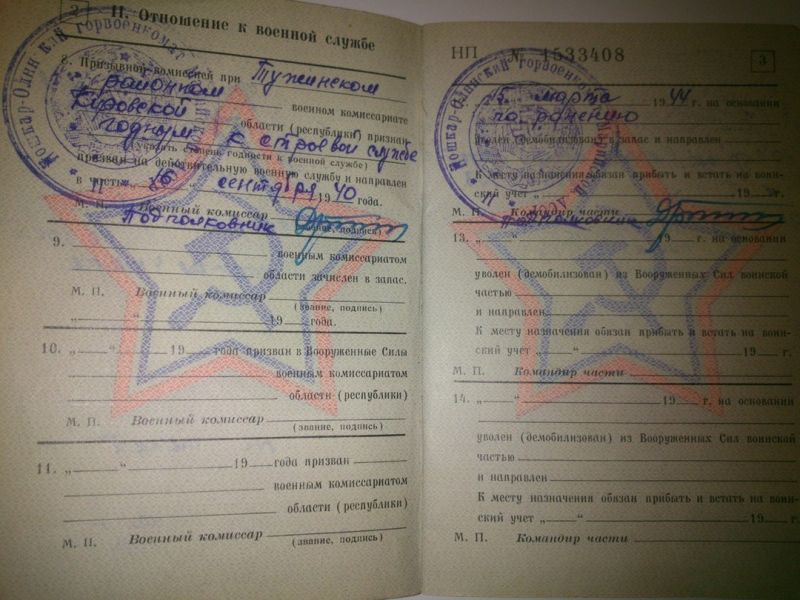 2
II. Отношение к военной службе
8. Призывной комиссией при Тужинском
районном военном комиссариате
Кировской области (республики) признан
годным к строевой службе
(указать степень годности к военной службе)
призван на действительную военную службу и направлен
в часть „ 16 " сентября 19 40 года.
М. П. Военный комиссар
Подполковник (звание, подпись)
9.
военным комиссариатом
области зачислен в запас.
М. П. Военный комиссар
(звание, подпись)
„ " 19 года.
10. „ " 19 года призван в Вооруженные Силы
военным комиссариатом
области (республики)
М. П. Военный комиссар
(звание, подпись)
11. „ " 19 года призван
военным комиссариатом
области (республики)
М. П. Военный комиссар
(звание, подпись)
Йошкар-Олинский горвоенкомат
НП № 1533408
3
марта 19 44 г. на основании
по ранению
уволен (демобилизован) в запас и направлен
К месту назначения обязан прибыть и встать на воин-
ский учет „ " 19 г.
М. П. Командир части
Подполковник
13. „ " 19 г. на основании
уволен (демобилизован) из Вооруженных Сил воинской
частью
и направлен
К месту назначения обязан прибыть и встать на воин-
ский учет „ " 19 г.
М. П. Командир части
14. „ " 19 г. на основании
уволен (демобилизован) из Вооруженных Сил воинской
частью
и направлен
К месту назначения обязан прибыть и встать на воин-
ский учет „ " 19 г.
М. П. Командир части
Йошкар-Олинский горвоенкомат